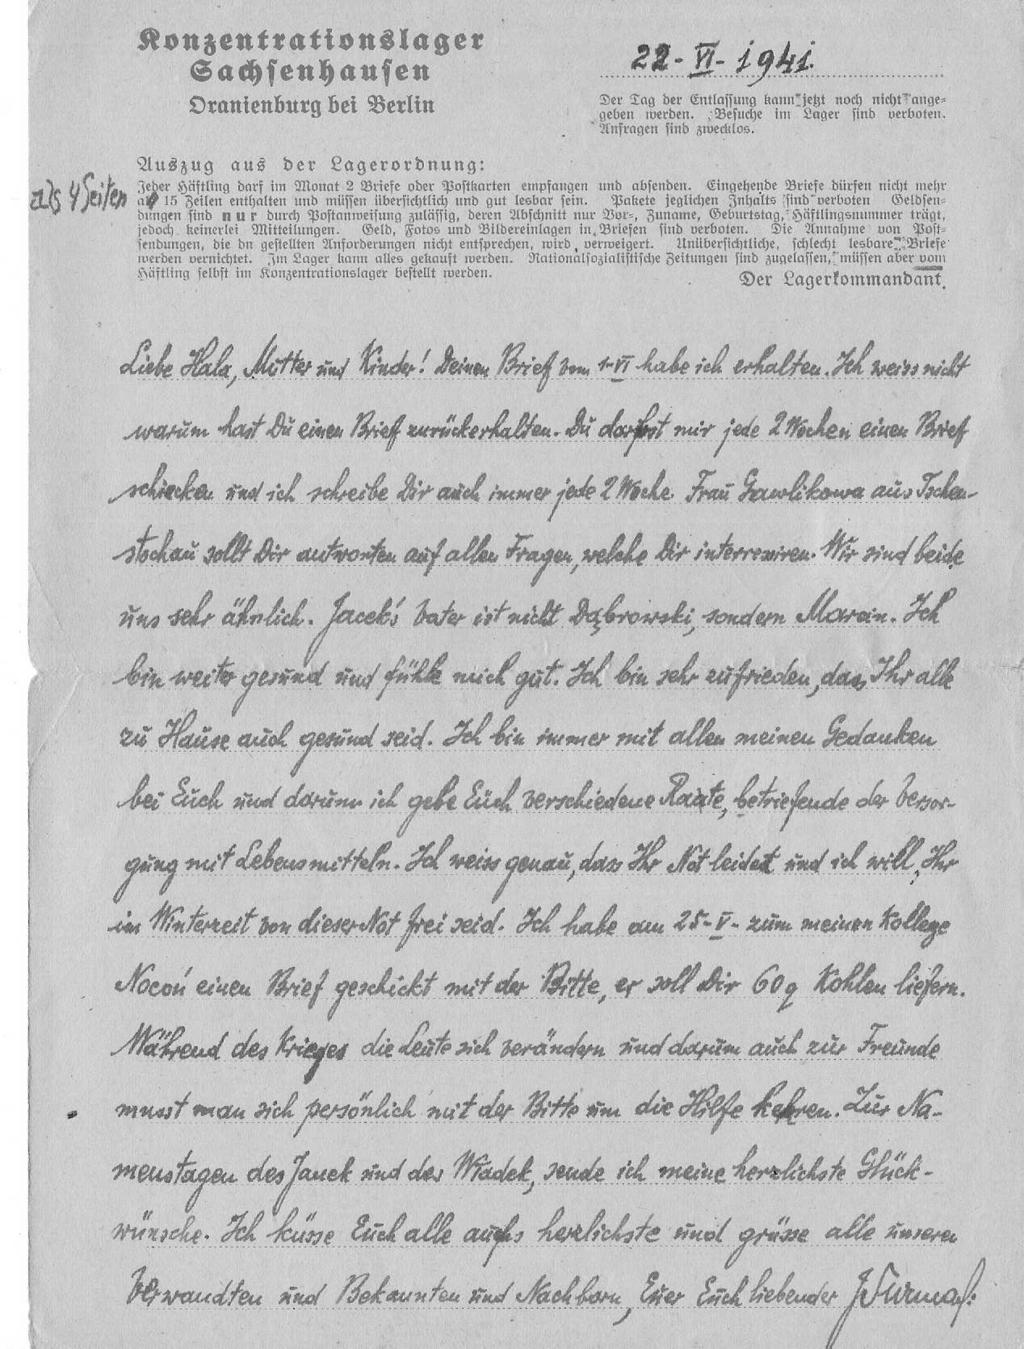 Konzentrationslager
Sachsenhausen
Oranienburg bei Berlin
22-VI-1941.
Der Tag der Entlassung kann jetzt noch nicht ange-
geben werden. Besuche im Lager sind verboten.
Anfragen sind zwecklos.
Auszug aus der Lagerordnung:
als 4 Seiten
Jeder Häftling darf im Monat 2 Briefe oder Postkarten empfangen und absenden. Eingehende Briefe dürfen nicht mehr
à 15 Zeilen enthalten und müssen übersichtlich und gut lesbar sein. Pakete jeglichen Inhalts sind verboten Geldsen-
dungen sind nur durch Postanweisung zulässig, deren Abschnitt nur Vor-, Zuname, Geburtstag, Häftlingsnummer trägt,
jedoch keinerlei Mitteilungen. Geld, Fotos und Bildereinlagen in Briefen sind verboten. Die Annahme von Post-
sendungen, die dn gestellten Anforderungen nicht entsprechen, wird verweigert. Unübersichtliche, schlecht lesbare Briefe
werden vernichtet. Im Lager kann alles gekauft werden. Nationalsozialistische Zeitungen sind zugelassen, müssen aber vom
Häftling selbst im Konzentrationslager bestellt werden.
Der Lagerkommandant.
Liebe Hala, Mutter und Kinder! Deinen Brief vom 1-VI habe ich erhalten. Ich weiss nicht
warum hast Du einen Brief zurückerhalten. Du darfst mir jede 2 Wochen einen Brief
schiecken und ich schreibe Dir auch immer jede 2 Woche. Frau Gawlikowa aus Tschen-
stochau sollt Dir antworten auf allen Fragen, welche Dir interresiren. Wir sind beide
uns sehr ähnlich. Jacek's Vater ist nicht Dąbrowski, sondern Marcin. Ich
bin weiter gesund und fühle mich gut. Ich bin sehr zufrieden, das Ihr alle
zu Hause auch gesund seid. Ich bin immer mit allen meinen Gedanken
bei Euch und darum ich gebe Euch verschiedene Raate, betriefende der Versor-
gung mit Lebensmitteln. Ich weiss genau, dass Ihr Not leidet und ich will, Ihr
im Winterzeit von dieser Not frei seid. Ich habe am 25-V- zum meinen Kollege
Nocoń einen Brief geschickt mit der Bitte, er soll Dir 60 q Kohlen liefern.
Während des Krieges die Leute sich verändern und darum auch zur Freunde
musst man sich persönlich mit der Bitte um die Hilfe kehren. Zur Na-
menstagen des Janek und des Władek, sende ich meine herzlichste Glück-
wünsche. Ich küsse Euch alle aufs herzlichste und grüsse alle unseren
Verwandten und Bekannten und Nachborn, Euer Euch liebender